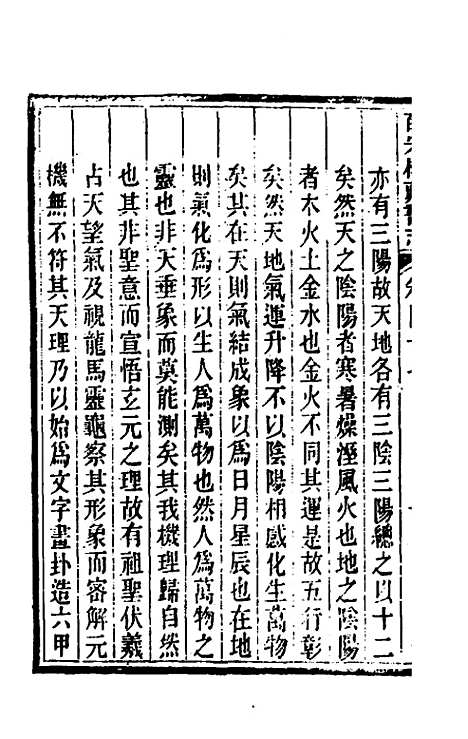 亦有三陽故天地各有三陰三陽總之以十二
矣然天之陰陽者寒暑燥溼風火也地之陰陽
者木火土金水也金火不同其運是故五行彰
矣然天地氣運升降不以陰陽相感化生萬物
矣其在天則氣結成象以為日月星辰也在地
則氣化為形以生人為萬物也然人為萬物之
靈也非天垂象而莫能測矣其我機理歸自然
也其非聖意而宣悟玄元之理故有祖聖伏羲
占天望氣及視龍馬靈龜察其形象而密解元
機無不符其天理乃以始為文字畫卦造六甲